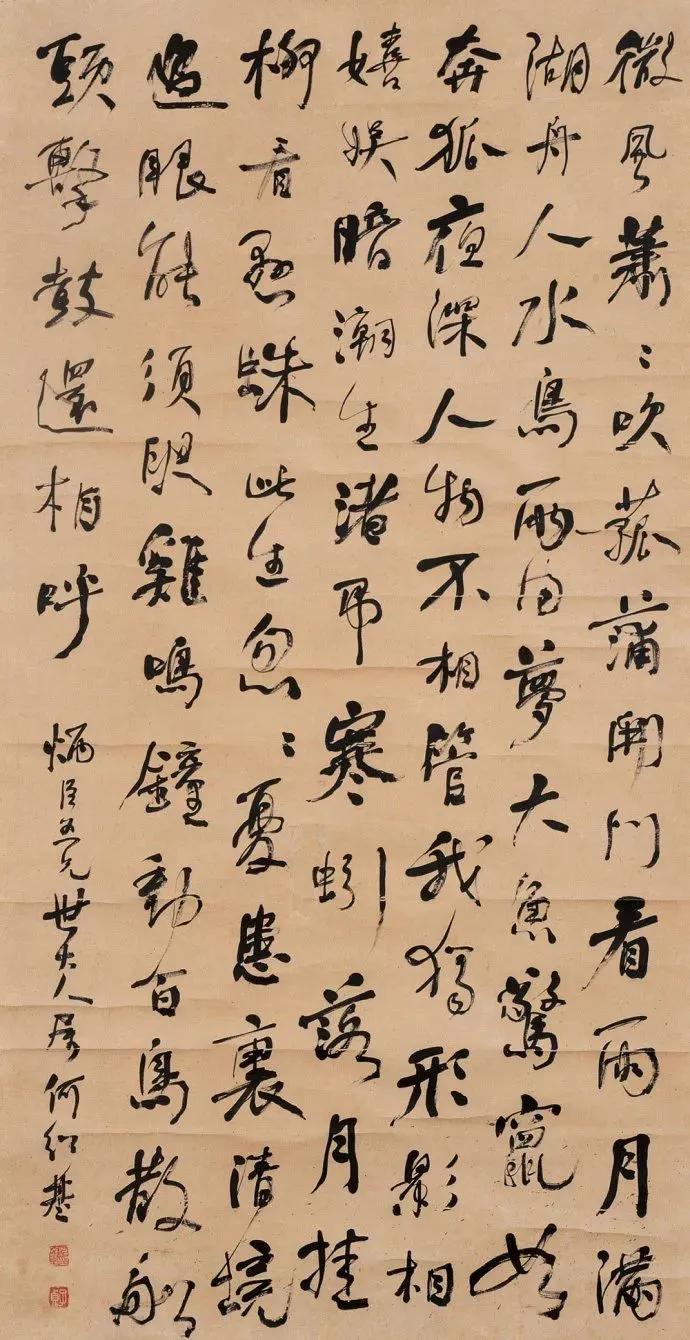 微風蕭〻吹菰蒲開門看雨月滿
湖舟人水鳥兩同夢大魚驚竄如
奔狐夜深人物不相管我獨形影相
嬉娛暗潮生渚弔寒蚓落月挂
柳看懸蛛此生忽〻憂患裏清境
過眼能須臾雞鳴鐘動百鳥散船
頭擊鼓還相呼
炳臣五兄世大人屬何紹基